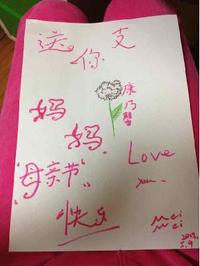 送你支
康乃馨
妈妈
"母亲节"
快乐
Love
Mei
Mei
5.9